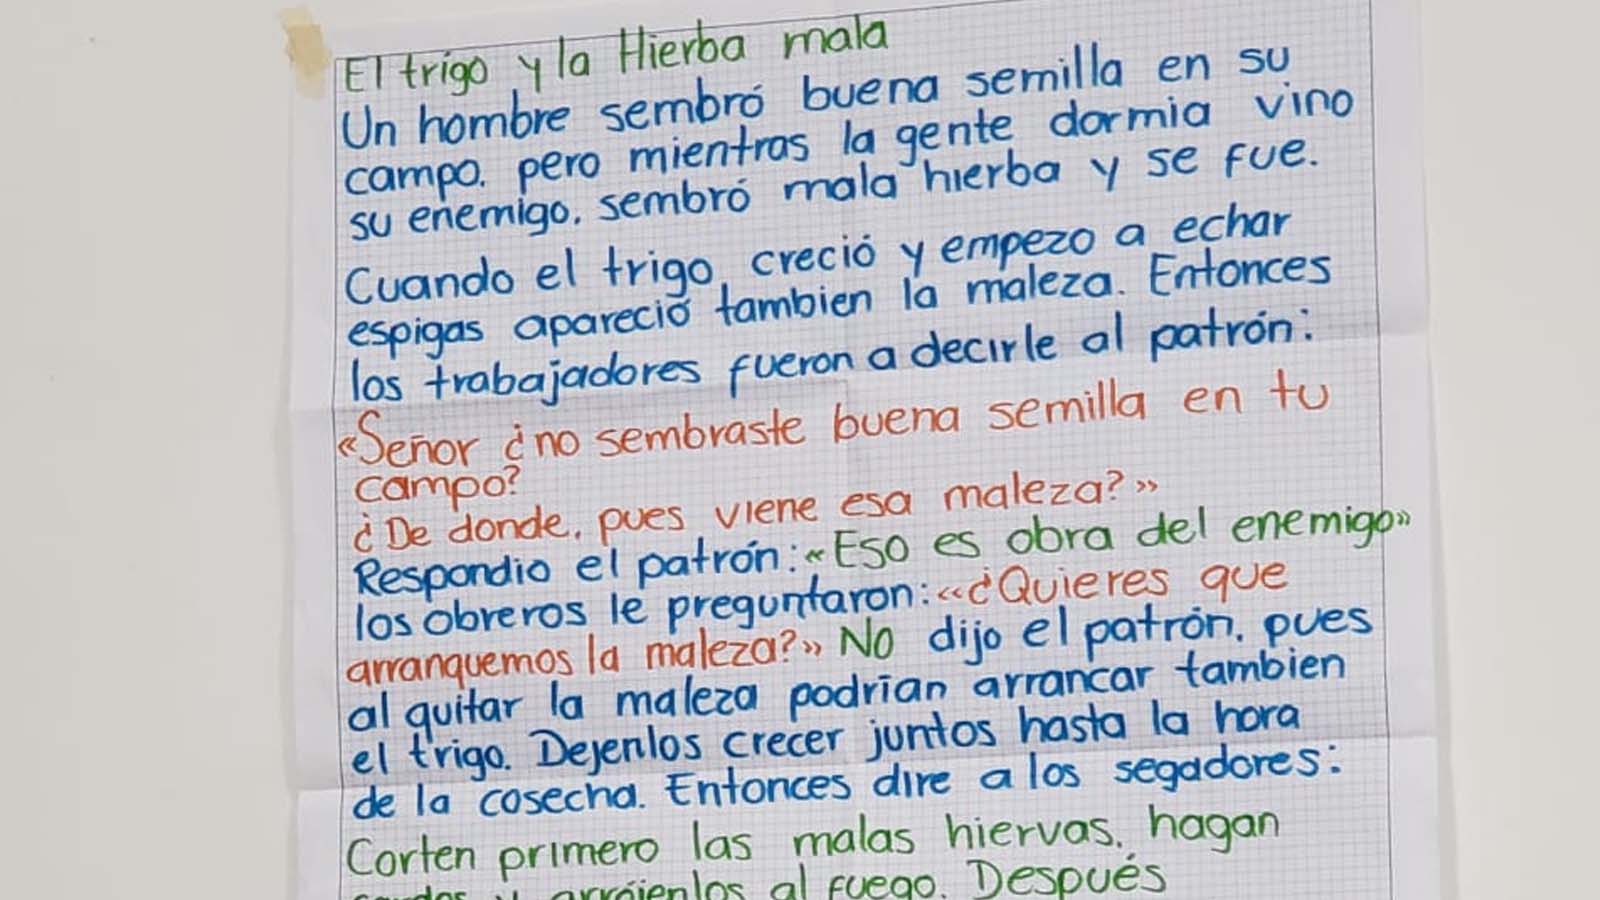 El trigo y la Hierba mala
Un hombre sembró buena semilla en su
campo. pero mientras la gente dormia vino
su enemigo. sembró mala hierba y se fue.
Cuando el trigo creció y empezo a echar
espigas apareció tambien la maleza. Entonces
los trabajadores fueron a decirle al patrón:
«Señor ¿no sembraste buena semilla en tu
campo?
¿De donde, pues viene esa maleza?»
Respondio el patrón: «Eso es obra del enemigo»
los obreros le preguntaron: «¿Quieres que
arranquemos la maleza?» No dijo el patrón, pues
al quitar la maleza podrian arrancar tambien
el trigo. Dejenlos crecer juntos hasta la hora
de la cosecha. Entonces dire a los segadores:
Corten primero las malas hiervas, hagan
y arrójenlos al fuego. Después